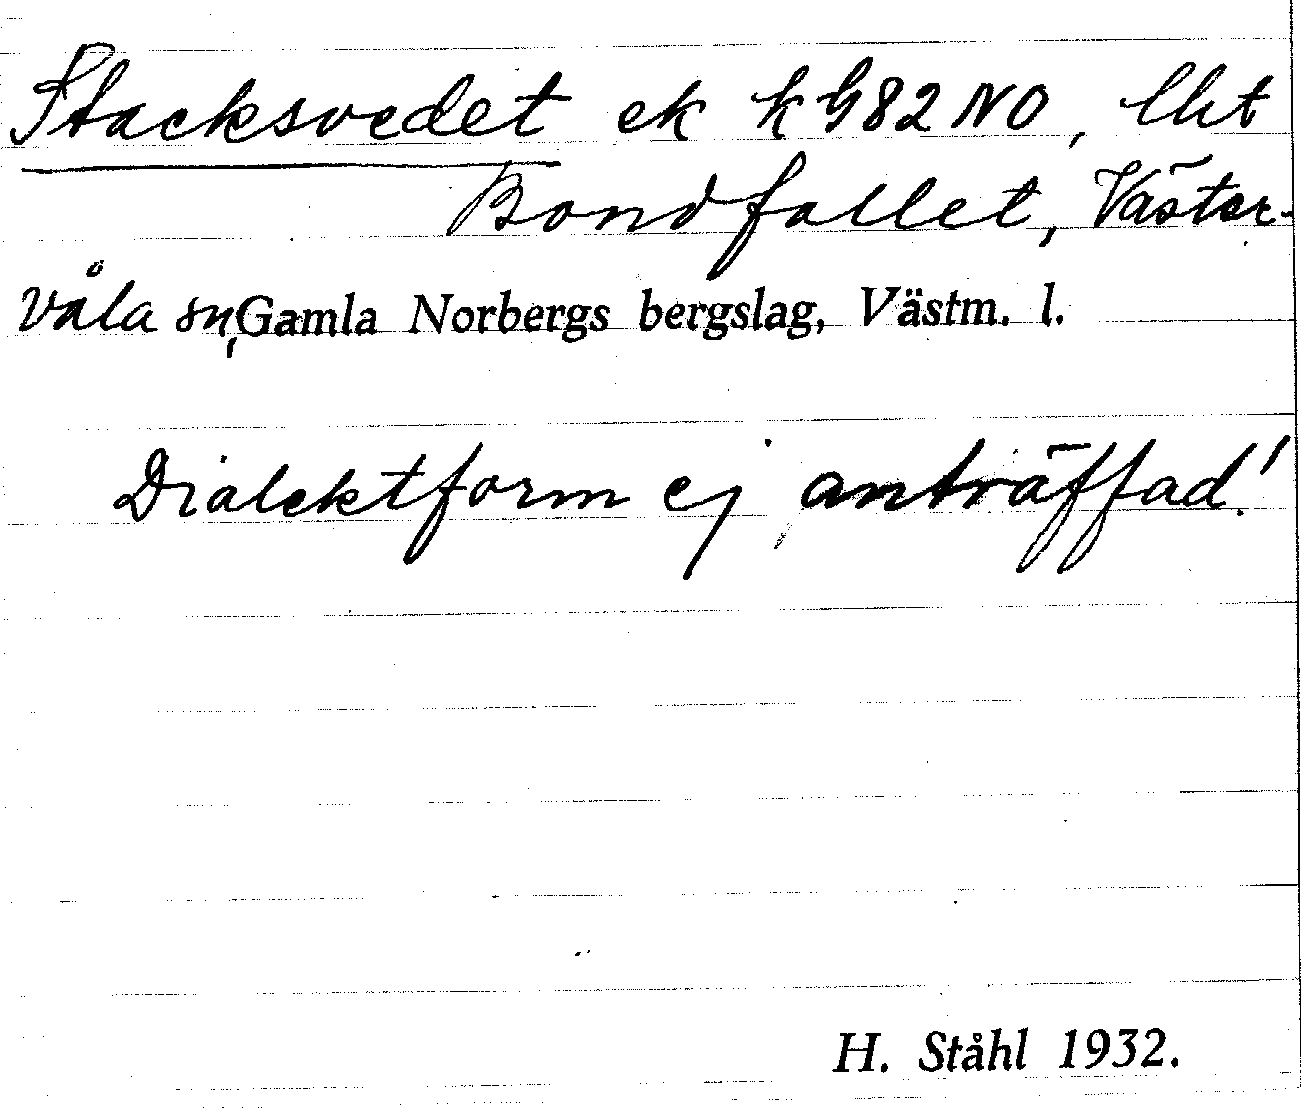 Stacksvedet ek k G82 NO, lht
Bondfallet, Väster-
våla sn, Gamla Norbergs bergslag, Västm. l.
Dialektform ej anträffad!
H. Ståhl 1932.